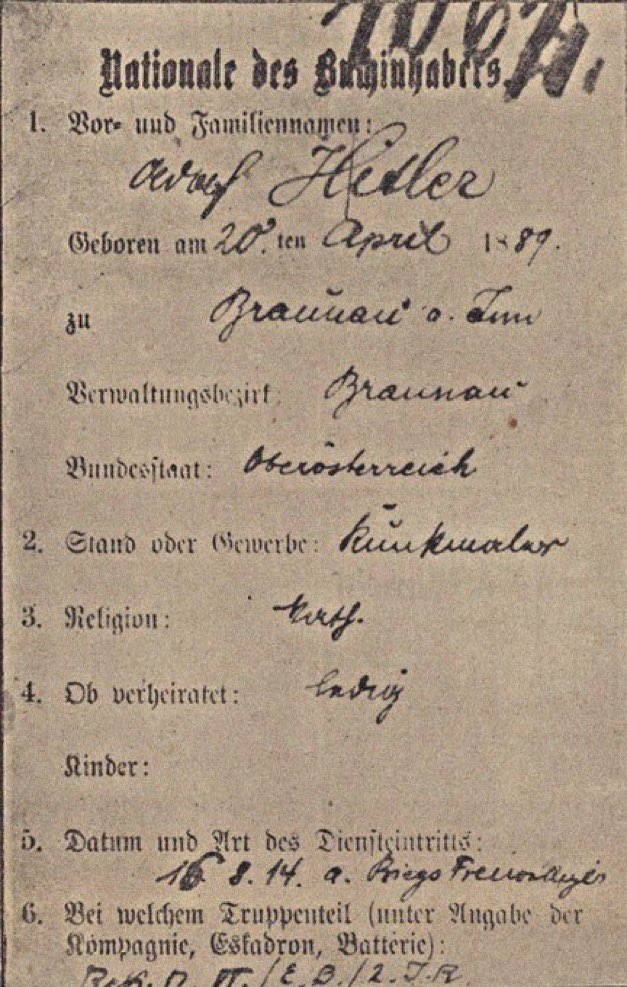 Nationale des Buchinhabers
1. Vor- und Familiennamen:
Adolf Hitler
Geboren am 20. ten April 1889.
zu Braunau a. Inn
Verwaltungsbezirk: Braunau
Bundesstaat: Oberösterreich
2. Stand oder Gewerbe: Kunstmaler
3. Religion: kath.
4. Ob verheiratet: ledig
Kinder:
5. Datum und Art des Diensteintritts:
16 8. 14. a. Kriegsfreiwilliger
6. Bei welchem Truppenteil (unter Angabe der
Kompagnie, Eskadron, Batterie):
E. B. / 2. I. R.